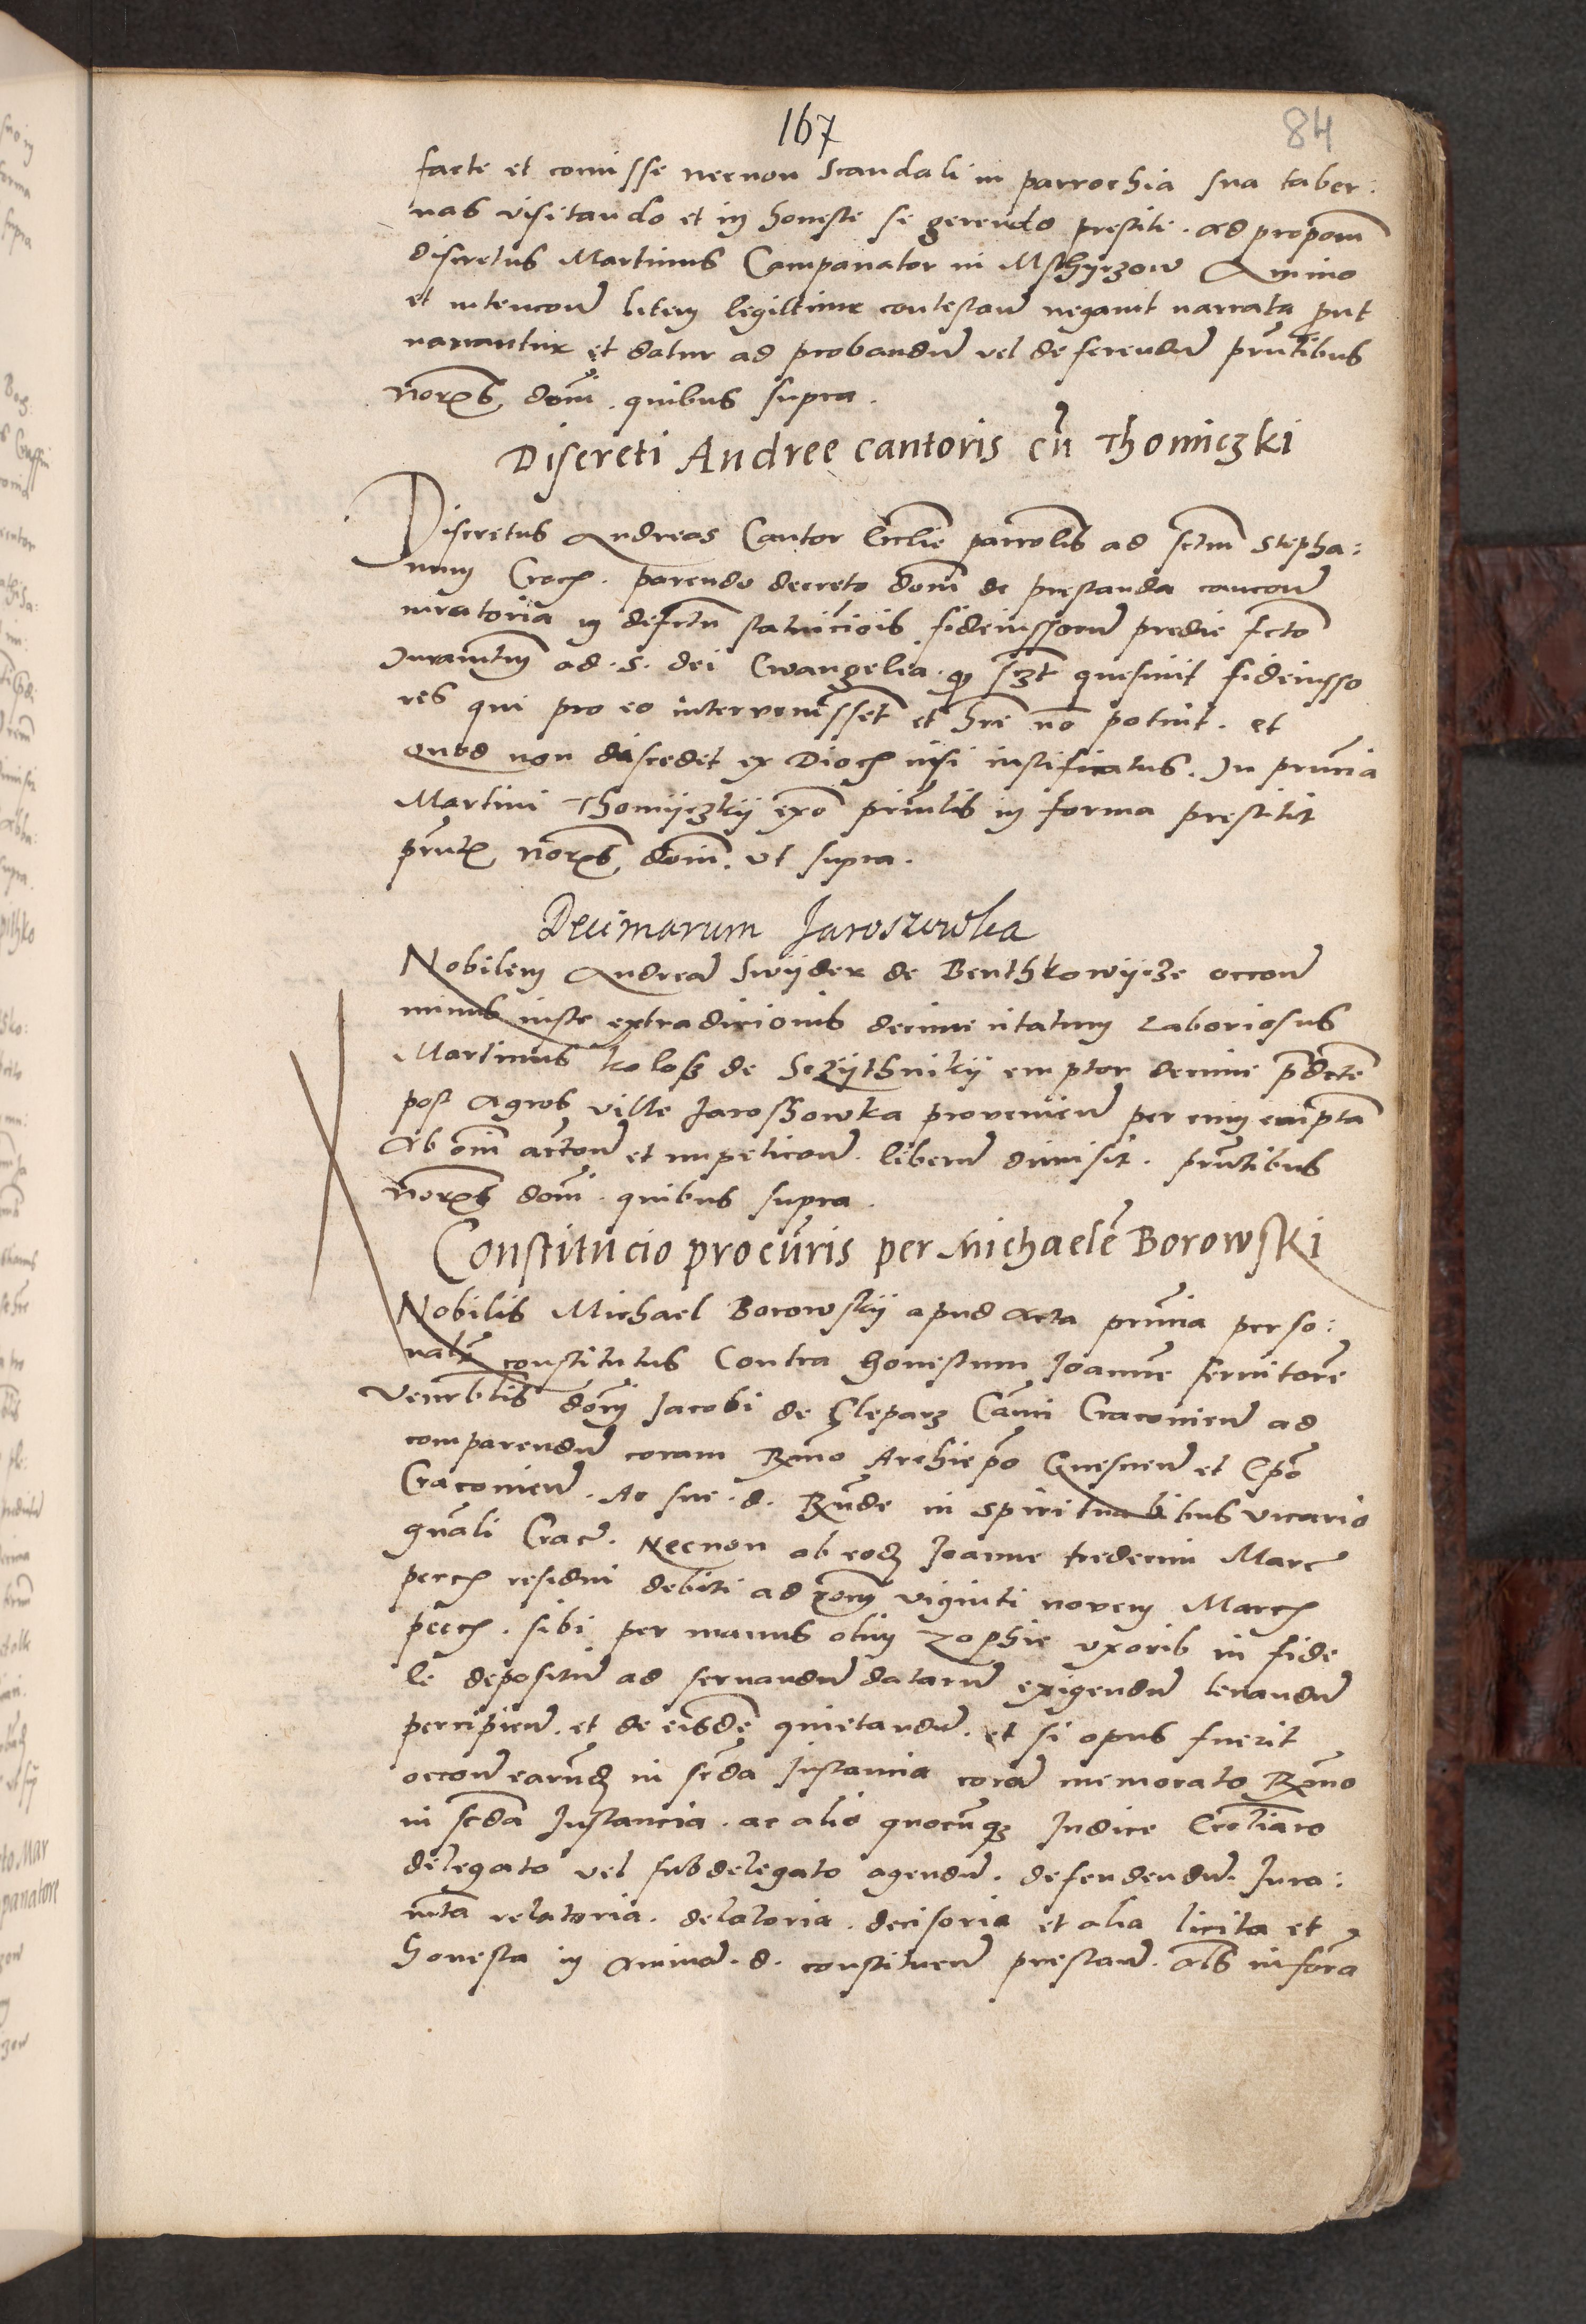 167
84
facte et comisse necnon scandali in parrochia sua taber:
nas visitando et in honeste se gerendo prestiti. Ad proponm
discretus Martinus Campanator in Msthyczow Animo
et intencone litem legittime contestan negavit narrata put
narrantur et datur ad probandu vel deferendu pntibus
norijs dom. quibus supra.
Discreti Andree cantoris cu Thomiczki
Discretus Andreas Cantor Ecclie parrolis ad sctum Stepha:
num Crac. parendo decreto dom de prestanda caucone
iuratoria in defctu statuicionis fideiussoru predie fcto
Juramtm ad. S. dei Ewangelia. q quesivit fideiusso
res qui pro eo intervenissent et hre no potuit. et
quod non discedet ex Dioc nisi iustificatus. In pruncia
Martini Thomyczky exo prinlis in forma prestitit
pntt norijs dom. ut supra.
Decimarum Jaroszowka
Nobilem Andrea Swyder de Benthkowycze occone
minus iuste extradicionis decime citatum Laboriosus
Martinus kolosz de Sczythniky emptor decime pdcte
post Agros ville Jarosszowka provenien per eum empta
Ab omi actone et impeticone. liberu dimisit. pntibus
norijs dom. quibus supra.
Constitucio procuris per Michaele Borowski
Nobilis Michael Borowsky apud Acta pruncia perso:
nalr constitutus Contra honestum Joanne servitore
Venerblis domi Jacobi de Cleparz Cani Cracovien ad
comparendu coram Rmo Archiepo Gnesnen et Epo
Cracovien. Ac sue. d. Rnde in spiritualibus vicario
gnali Crac. Necnon ab eod Joanne tredecim Marc
pecc residui debiti ad roem viginti novem Marc
pecc. sibi per manus olim Zophie uxoris in fide
le depositu ad servandu dataru exigendu levandu
percipien. et de eisde quietandu. et si opus fuerit
occone earund in scda Instancia cora memorato Rmo
in scda Instancia. ac alio quocunq Judice Eccliaco
delegato vel subdelegato agendu. defendendu. Jura:
mta relatoria. delatoria. decisoria et alia licita et
honesta in Anima. d. constituen prestan. als in forma